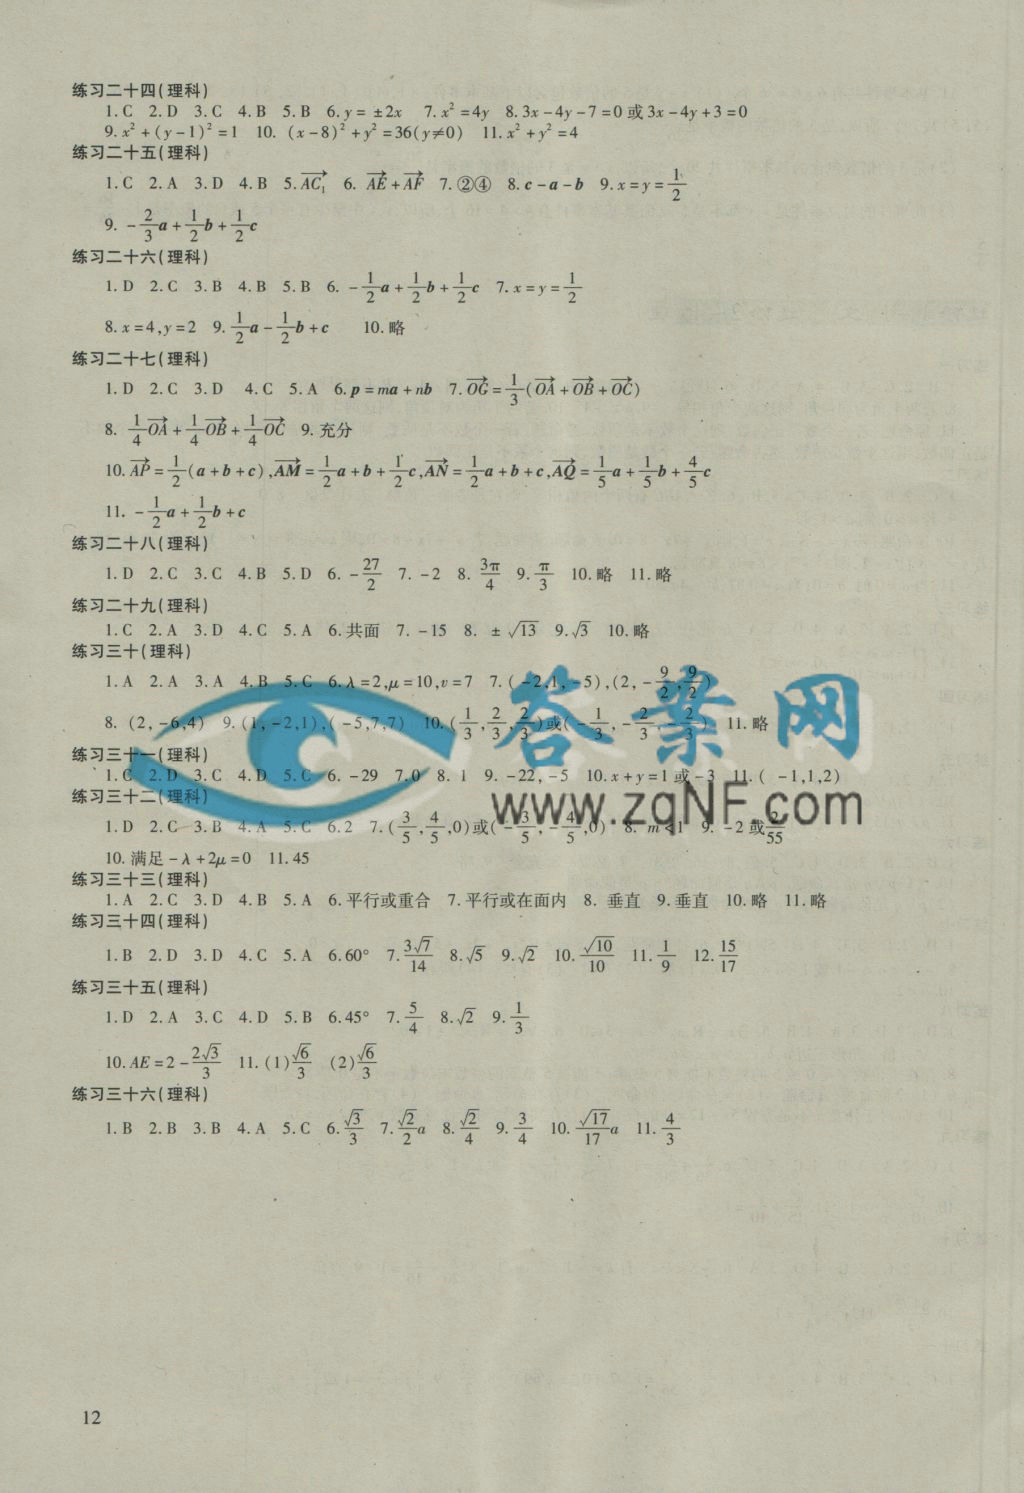 练习二十四(理科)
1.C 2.D 3.C 4.B 5.B 6.y=±2x 7.x²=4y 8.3x-4y-7=0或3x-4y+3=0
9.x²+(y-1)²=1 10.(x-8)²+y²=36(y≠0) 11.x²+y²=4
练习二十五(理科)
1.C 2.A 3.D 4.B 5.$\overrightarrow{AC_1}$ 6.$\overrightarrow{AE}+\overrightarrow{AF}$ 7.②④ 8.c-a-b 9.x=y=1/2
9.-2/3a+1/2b+1/2c
练习二十六(理科)
1.D 2.C 3.B 4.B 5.B 6.-1/2a+1/2b+1/2c 7.x=y=1/2
8.x=4,y=2 9.1/2a-1/2b+c 10.略
练习二十七(理科)
1.D 2.C 3.D 4.C 5.A 6.p=ma+nb 7.$\overrightarrow{OG}$=1/3($\overrightarrow{OA}+\overrightarrow{OB}+\overrightarrow{OC}$)
8.1/4$\overrightarrow{OA}$+1/4$\overrightarrow{OB}$+1/4$\overrightarrow{OC}$ 9.充分
10.$\overrightarrow{AP}$=1/2(a+b+c),$\overrightarrow{AM}$=1/2a+b+1/2c,$\overrightarrow{AN}$=1/2a+b+c,$\overrightarrow{AQ}$=1/5a+1/5b+4/5c
11.-1/2a+1/2b+c
练习二十八(理科)
1.D 2.C 3.C 4.B 5.D 6.-27/2 7.-2 8.3π/4 9.π/3 10.略 11.略
练习二十九(理科)
1.C 2.A 3.D 4.C 5.A 6.共面 7.-15 8.±√13 9.√3 10.略
练习三十(理科)
1.A 2.A 3.A 4.B 5.C 6.λ=2,μ=10,v=7 7.(-2,1,-5),(2,-9/2,9/2)
8.(2,-6,4) 9.(1,-2,1),(-5,7,7) 10.(1/3,2/3,2/3)或(-1/3,-2/3,-2/3) 11.略
练习三十一(理科)
1.C 2.D 3.C 4.D 5.C 6.-29 7.0 8.1 9.-22,-5 10.x+y=1或-3 11.(-1,1,2)
练习三十二(理科)
1.D 2.C 3.B 4.A 5.C 6.2 7.(3/5,4/5,0)或(-3/5,-4/5,0) 8.m<1 9.-2或2/55
10.满足-λ+2μ=0 11.45
练习三十三(理科)
1.A 2.C 3.D 4.B 5.A 6.平行或重合 7.平行或在面内 8.垂直 9.垂直 10.略 11.略
练习三十四(理科)
1.B 2.D 3.D 4.C 5.A 6.60° 7.3√7/14 8.√5 9.√2 10.√10/10 11.1/9 12.15/17
练习三十五(理科)
1.D 2.A 3.C 4.D 5.B 6.45° 7.5/4 8.√2 9.1/3
10.AE=2-2√3/3 11.(1)√6/3 (2)√6/3
练习三十六(理科)
1.B 2.B 3.B 4.A 5.C 6.√3/3 7.√2/2a 8.√2/4 9.3/4 10.√17/17a 11.4/3
答案网
www.zqNF.com
12